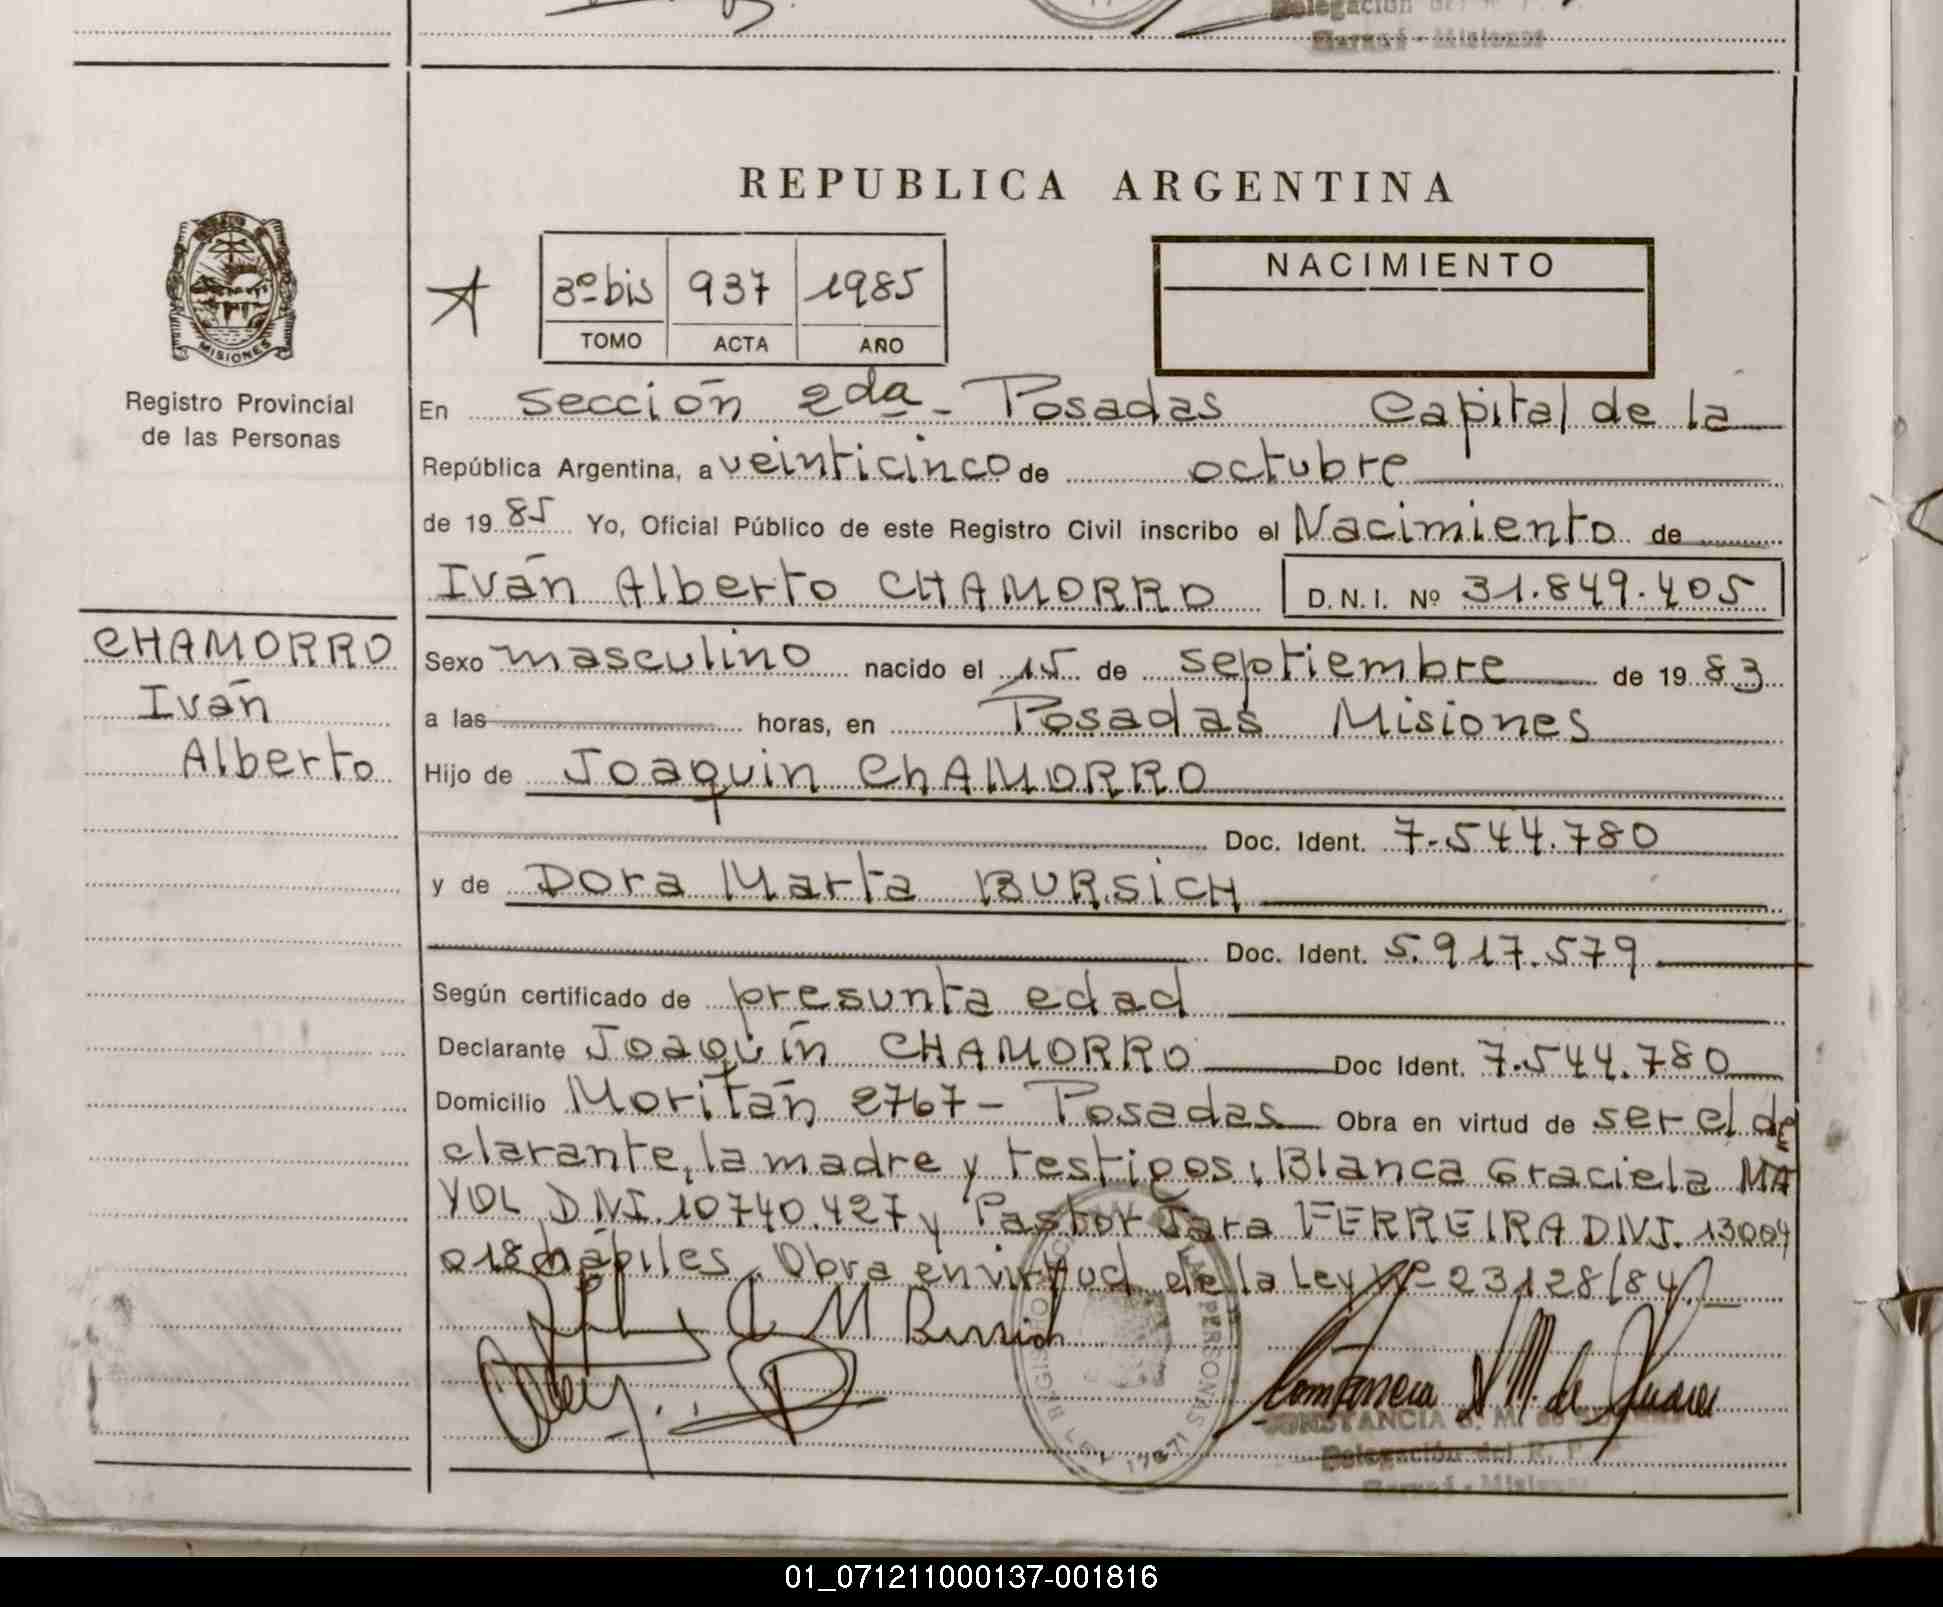 Delegación del R. P.
Garupá - Misiones
REPUBLICA ARGENTINA
3º bis 937 1985
TOMO ACTA AÑO
NACIMIENTO
MISIONES
Registro Provincial
de las Personas
En Sección 2da - Posadas Capital de la
República Argentina, a veinticinco de octubre
de 1985 Yo, Oficial Público de este Registro Civil inscribo el Nacimiento de
Iván Alberto CHAMORRO D.N.I. Nº 31.849.405
CHAMORRO
Iván
Alberto
Sexo masculino nacido el 15 de septiembre de 1983
a las horas, en Posadas Misiones
Hijo de Joaquin ChAMORRO
Doc. Ident. 7.544.780
y de Dora Marta BURSiCH
Doc. Ident. 5.917.579
Según certificado de presunta edad
Declarante Joaquín CHAMORRO Doc Ident. 7.544.780
Domicilio Moritán 2767 - Posadas Obra en virtud de ser el de
clarante, la madre y testigos: Blanca Graciela MA
YOL DNI. 10740.427 y Pastor Jara FERREIRA DNI. 13004
018 hábiles. Obra en virtud de la Ley Nº 23128/84.
M Bursich
Constancia S. M. de Juarez
CONSTANCIA S. M. de
Delegación del R. P.
Garupá - Misiones
01_071211000137-001816